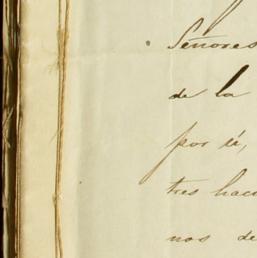 Señores
de la
por sí,
tres hac
nos de